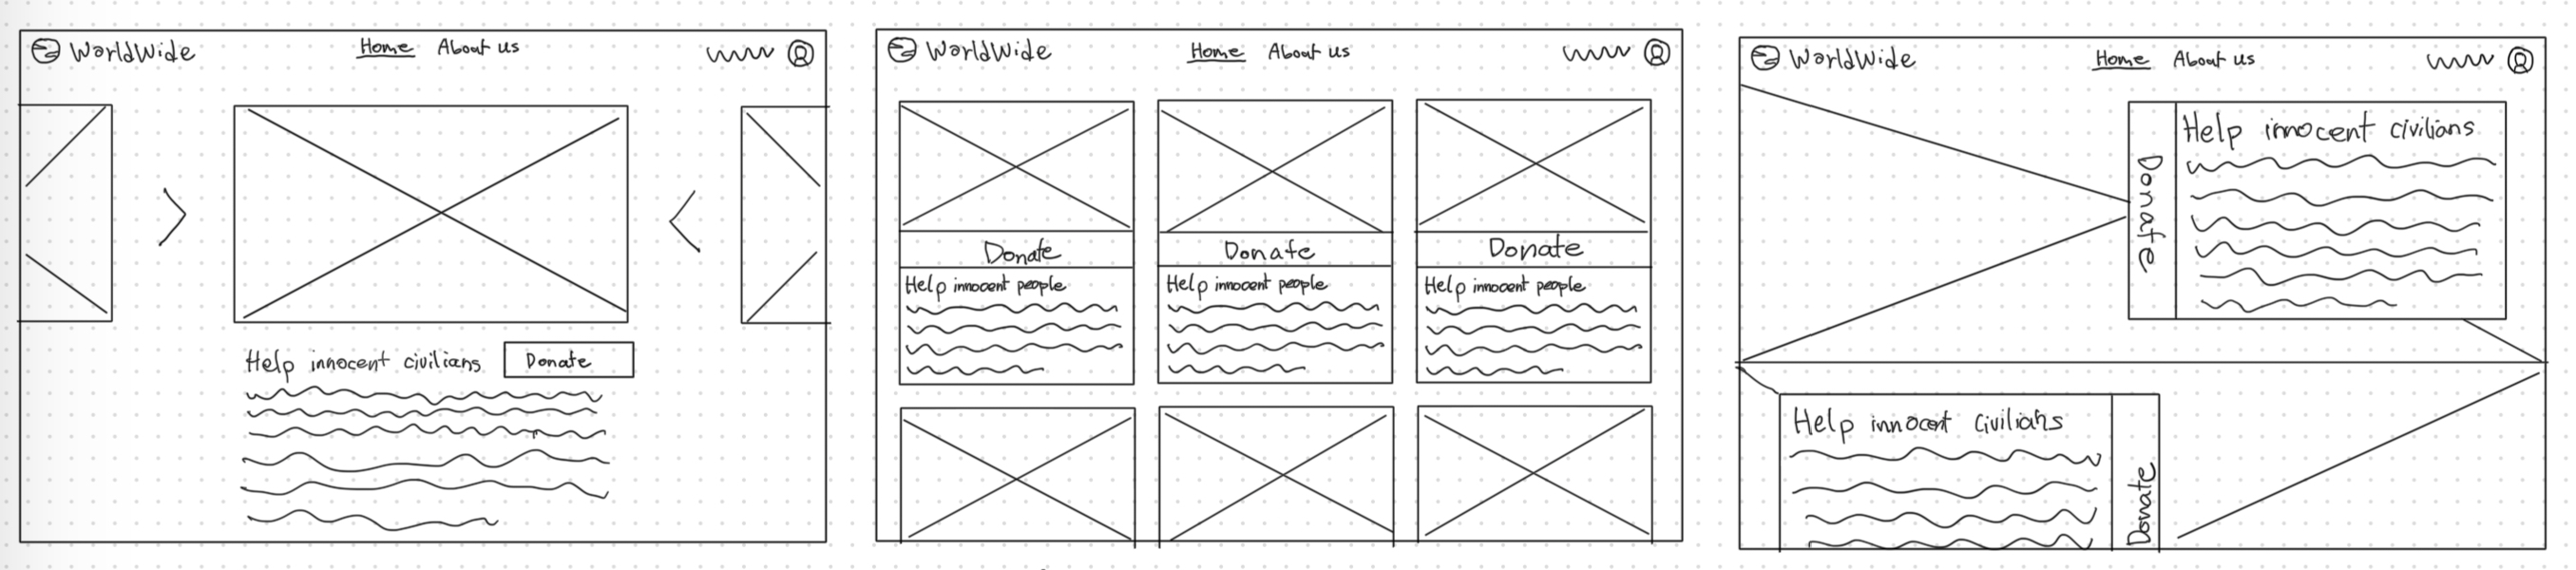 WorldWide
Home About us
Help innocent civilians
Donate
WorldWide
Home About us
Donate
Help innocent people
Donate
Help innocent people
Donate
Help innocent people
WorldWide
Home About us
Donate
Help innocent civilians
Help innocent civilians
Donate